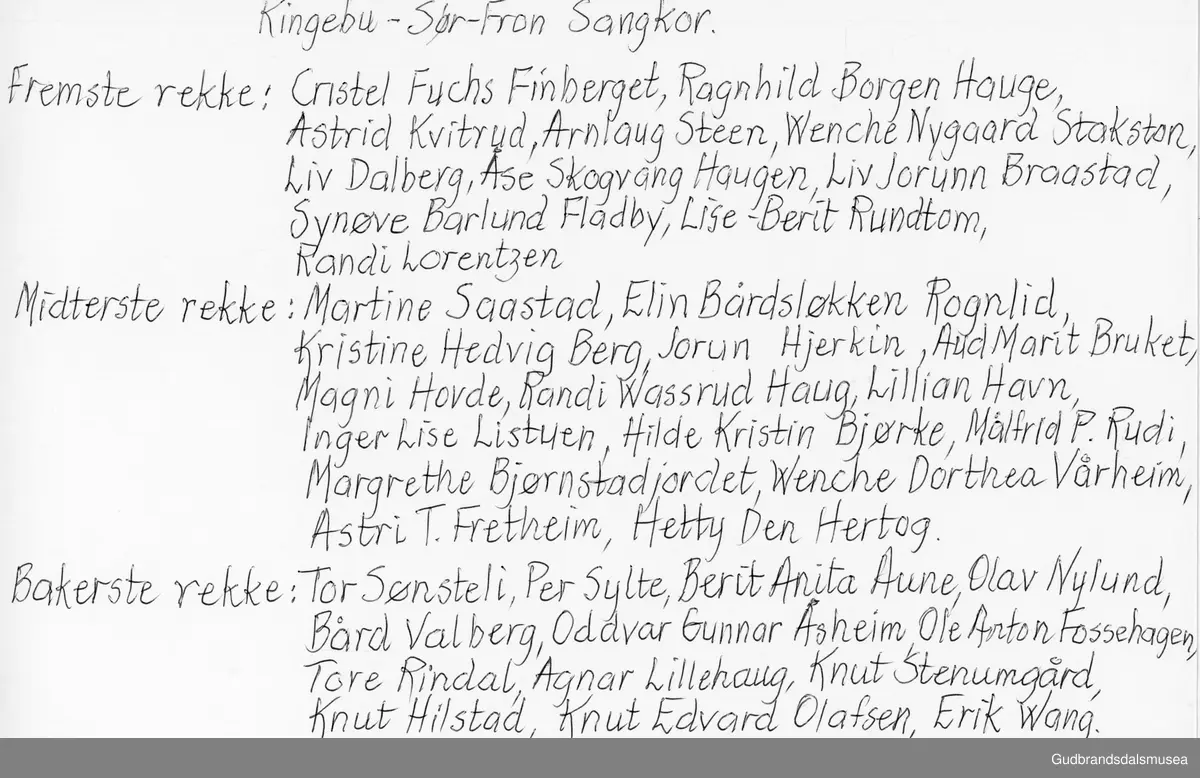 Ringebu - Sør-Fron Sangkor.
Fremste rekke: Cristel Fuchs Finberget, Ragnhild Borgen Hauge,
Astrid Kvitrud, Arnlaug Steen, Wenche Nygaard Stakston,
Liv Dalberg, Åse Skogvang Haugen, Liv Jorunn Braastad,
Synøve Barlund Fladby, Lise-Berit Rundtom,
Randi Lorentzen
Midterste rekke: Martine Saastad, Elin Bårdsløkken Rognlid,
Kristine Hedvig Berg, Jorun Hjerkin, Aud Marit Bruket,
Magni Hovde, Randi Wassrud Haug, Lillian Havn,
Inger Lise Listuen, Hilde Kristin Bjørke, Målfrid P. Rudi,
Margrethe Bjørnstadjordet, Wenche Dorthea Vårheim,
Astri T. Fretheim, Hetty Den Hertog.
Bakerste rekke: Tor Sønsteli, Per Sylte, Berit Anita Aune, Olav Nylund,
Bård Valberg, Oddvar Gunnar Åsheim, Ole Anton Fossehagen,
Tore Rindal, Agnar Lillehaug, Knut Stenumgård,
Knut Hilstad, Knut Edvard Olafsen, Erik Wang.
Gudbrandsdalsmusea